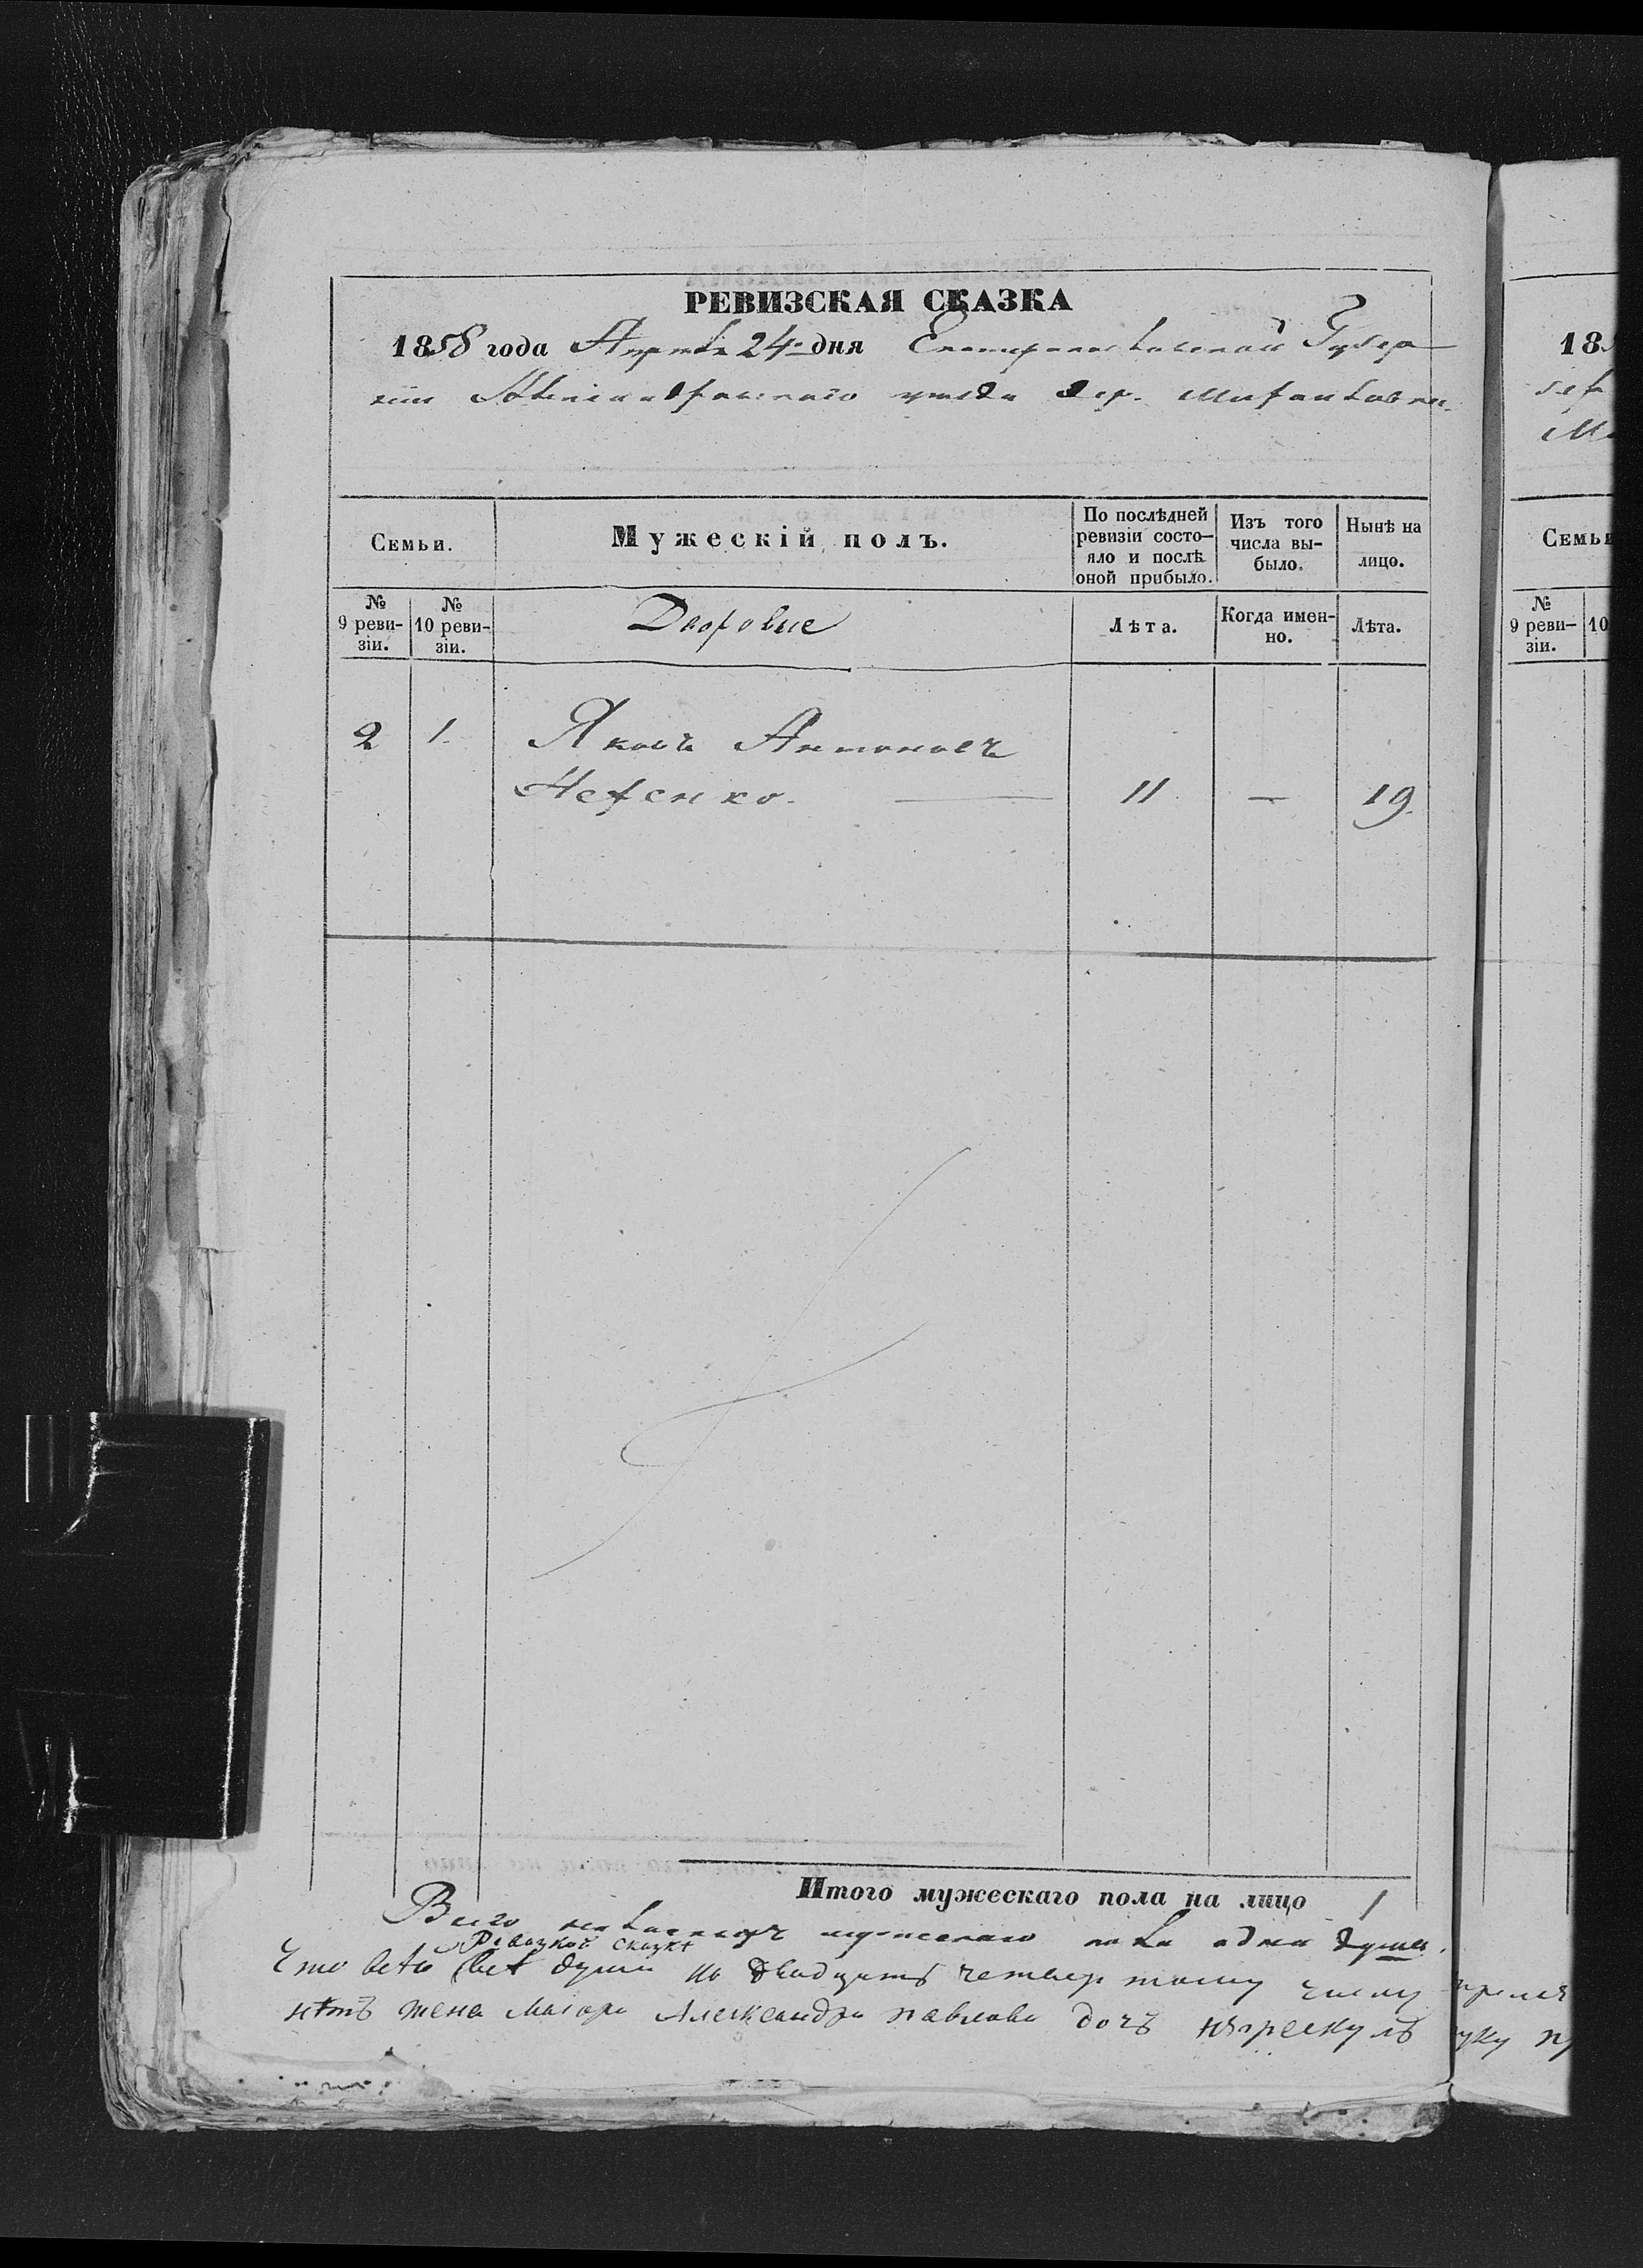 РЕВИЗСКАЯ СКАЗКА
1858 года Апреля 24го дня Екатеринославской Губер
ніи Александровскаго уезда дер. Мирановки
Семьи.
Мужескій полъ.
По послѣдней ревизіи состо-
яло и послѣ оной прибыло.
Изъ того числа вы-
было.
Нынѣ на лицо.
№ 9 реви-
зіи.
№ 10 реви-
зіи.
Дворовые
Лѣта.
Когда имен-
но.
Лѣта.
2 1. Яковъ Антоновъ
Нетенко. — 11 — 19.
Итого мужескаго пола на лицо 1
Всего наличныхъ мужескаго пола одна душа.
Ревизкой сказке
Что всей сей души по двадцать четвертому числу
нѣтъ жена Маіора Александра павлова дочъ
18
Семьи
№ 9 реви-
зіи.
10